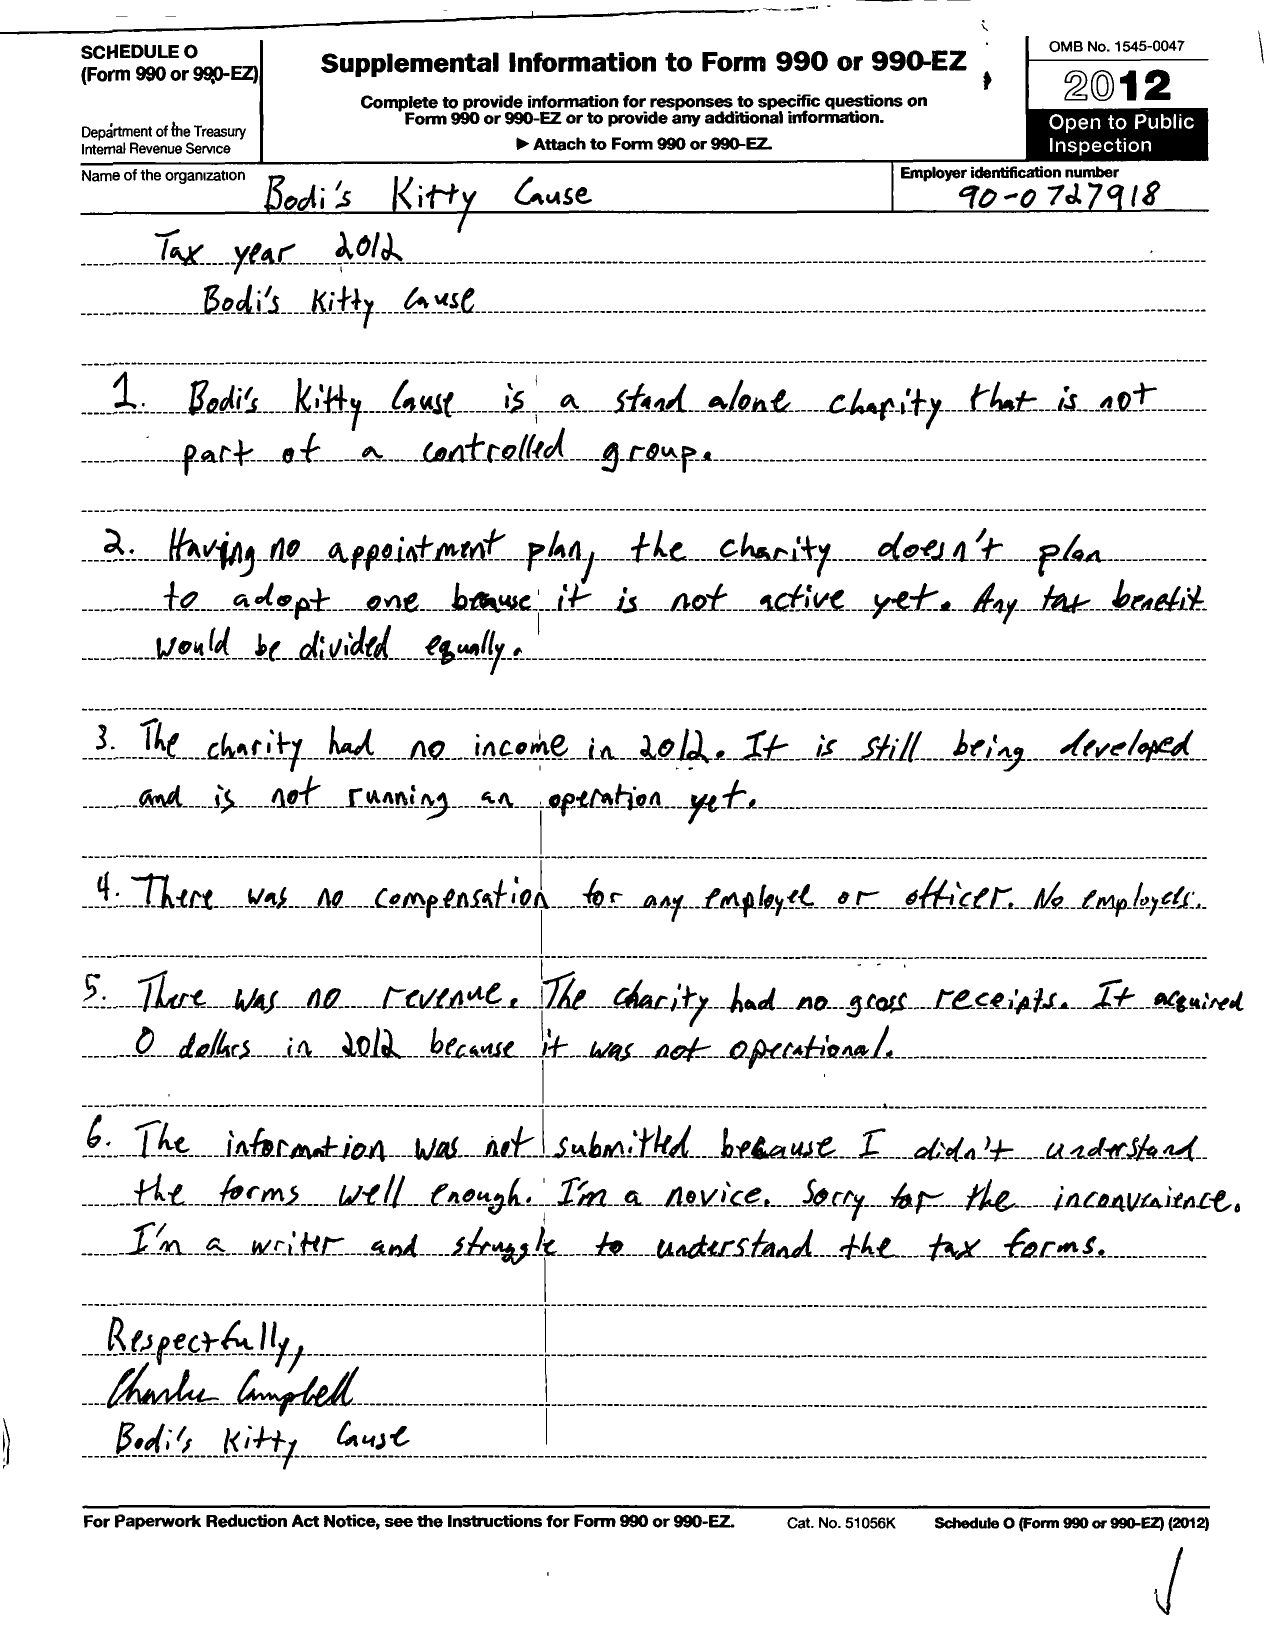 SCHEDULE O
(Form 990 or 990-EZ)
Department of the Treasury
Internal Revenue Service
Supplemental Information to Form 990 or 990-EZ
Complete to provide information for responses to specific questions on
Form 990 or 990-EZ or to provide any additional information.
▶ Attach to Form 990 or 990-EZ.
OMB No. 1545-0047
2012
Open to Public
Inspection
Name of the organization
Bodi's Kitty Cause
Employer identification number
90-0727918
Tax year 2012
Bodi's Kitty Cause
1. Bodi's Kitty Cause is a stand alone charity that is not
part of a controlled group.
2. Having no appointment plan, the charity doesn't plan
to adopt one because it is not active yet. Any tax benefit
would be divided equally.
3. The charity had no income in 2012. It is still being developed
and is not running an operation yet.
4. There was no compensation for any employee or officer. No employees.
5. There was no revenue. The charity had no gross receipts. It acquired
0 dollars in 2012 because it was not operational.
6. The information was not submitted because I didn't understand
the forms well enough. I'm a novice. Sorry for the inconvenience.
I'm a writer and struggle to understand the tax forms.
Respectfully,
Charlie Campbell
Bodi's Kitty Cause
For Paperwork Reduction Act Notice, see the Instructions for Form 990 or 990-EZ.
Cat. No. 51056K
Schedule O (Form 990 or 990-EZ) (2012)